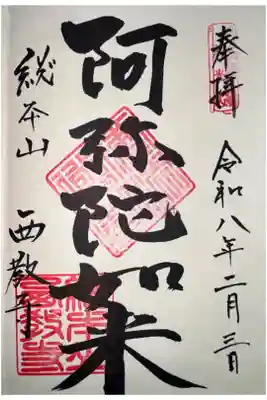 奉拝
令和八年二月三日
阿弥陀如来
総本山
西教寺